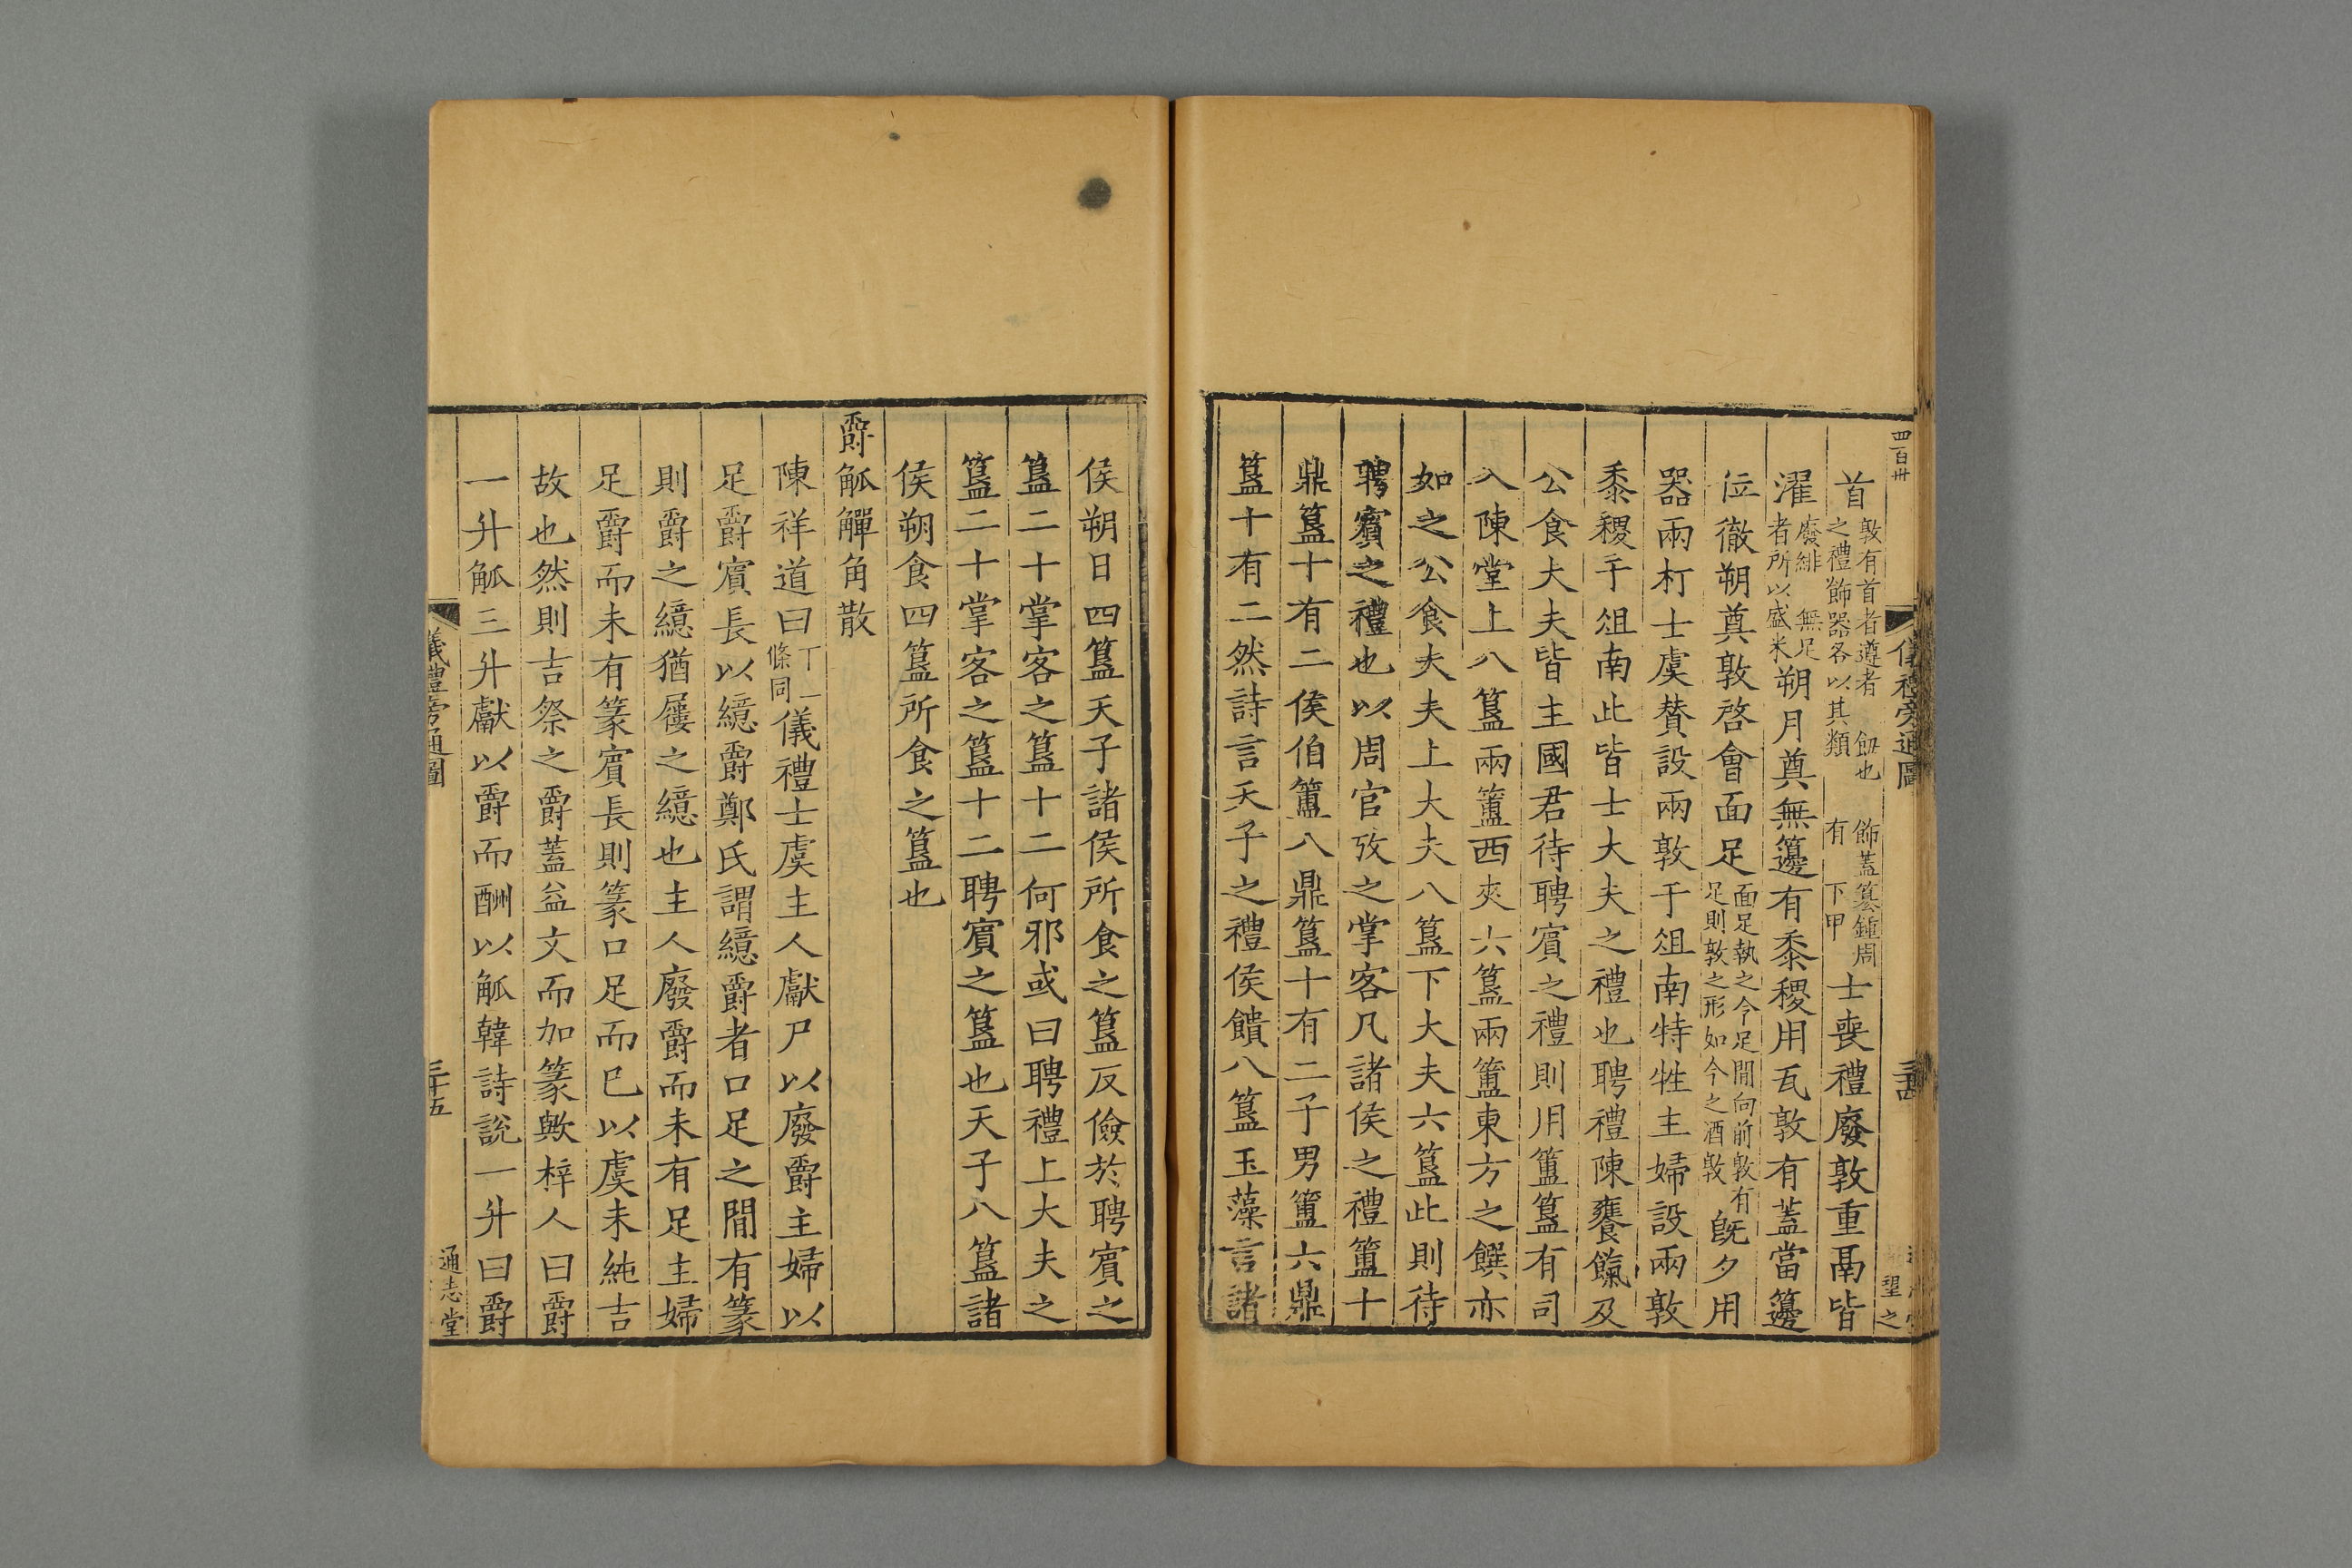 四百卅
儀禮旁通圖
三十四
望之
首敦有首者遵者之禮飾器各以其類
飾蓋簋鍾周有 下甲士喪禮廢敦重鬲皆
濯廢緋 無足者所以盛米朔月奠無籩有黍稷用瓦敦有蓋當籩
位徹朔奠敦啓會面足面足執之今足閒向前敦有足則敦之形如今之酒敦旣夕用
器兩杅士虞贊設兩敦于俎南特牲主婦設兩敦
黍稷于俎南此皆士大夫之禮也聘禮陳饔餼及
公食大夫皆主國君待聘賓之禮則用簠簋有司
入陳堂上八簋兩簠西夾六簋兩簠東方之饌亦
如之公食大夫上大夫八簋下大夫六簋此則待
聘賓之禮也以周官攷之掌客凡諸侯之禮簠十
鼎簋十有二侯伯簠八鼎簋十有二子男簠六鼎
簋十有二然詩言天子之禮侯饋八簋玉藻言諸
侯朔日四簋天子諸侯所食之簋反儉於聘賓之
簋二十掌客之簋十二何邪或曰聘禮上大夫之
簋二十掌客之簋十二聘賓之簋也天子八簋諸
侯朔食四簋所食之簋也
爵觚觶角散
陳祥道曰丁一條同儀禮士虞主人獻尸以廢爵主婦以
足爵賓長以繶爵鄭氏謂繶爵者口足之閒有篆
則爵之繶猶屨之繶也主人廢爵而未有足主婦
足爵而未有篆賓長則篆口足而已以虞未純吉
故也然則吉祭之爵蓋益文而加篆歟梓人曰爵
一升觚三升獻以爵而酬以觚韓詩說一升曰爵
儀禮旁通圖
三十五
通志堂